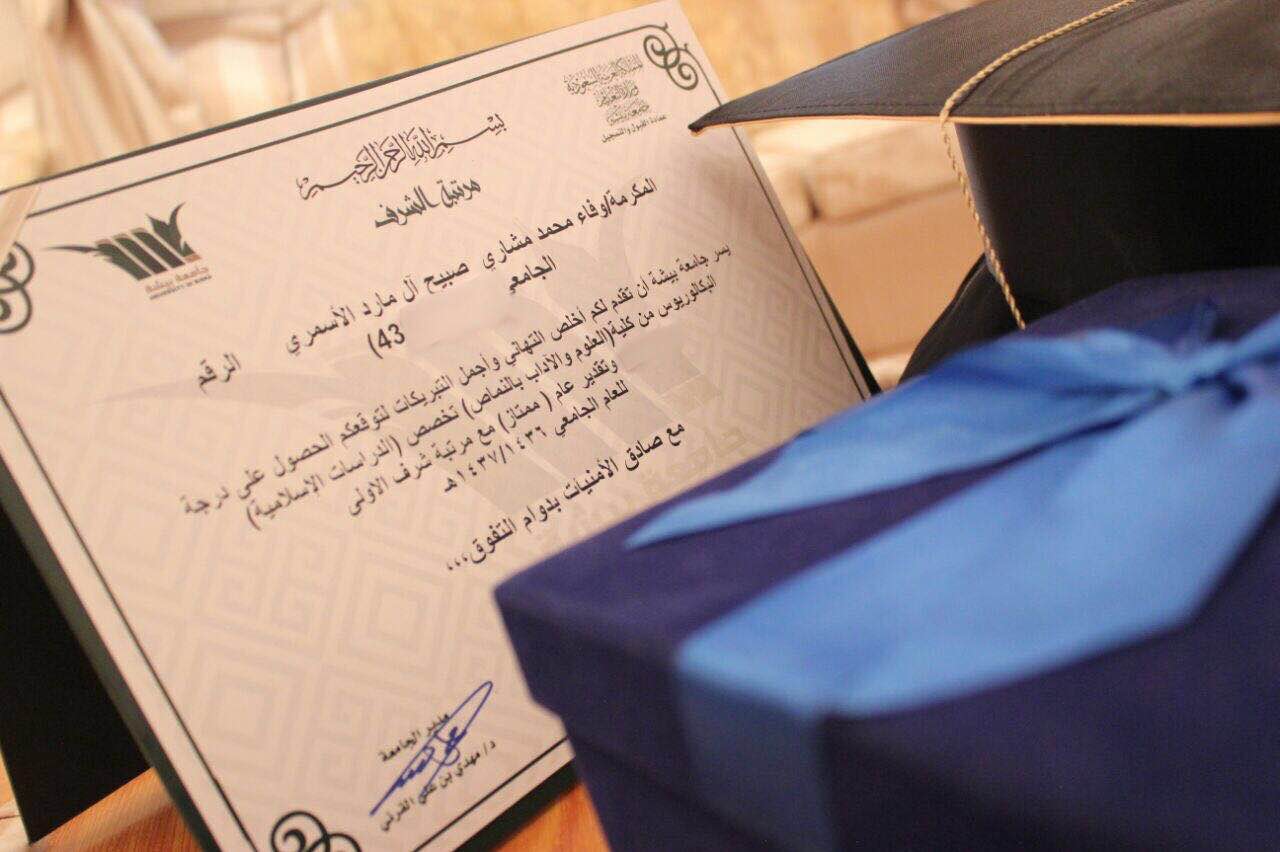 المملكة العربية السعودية
وزارة التعليم
جامعة بيشة
عمادة القبول والتسجيل
بسم الله الرحمن الرحيم
مرتبة الشرف
جامعة بيشة
UNIVERSITY OF BISHA
المكرمة/وفاء محمد مشاري صبيح آل مارد الأسمري الرقم
الجامعي 43)
يسر جامعة بيشة ان تقدم لكم اخلص التهاني وأجمل التبريكات لتوقعكم الحصول على درجة
البكالوريوس من كلية(العلوم والآداب بالنماص) تخصص (الدراسات الإسلامية)
وتقدير عام ( ممتاز) مع مرتبة شرف الاولى
للعام الجامعي ١٤٣٧/١٤٣٦هـ
مع صادق الأمنيات بدوام التفوق،،،
مدير الجامعة
د/ مهدي بن علي القرني